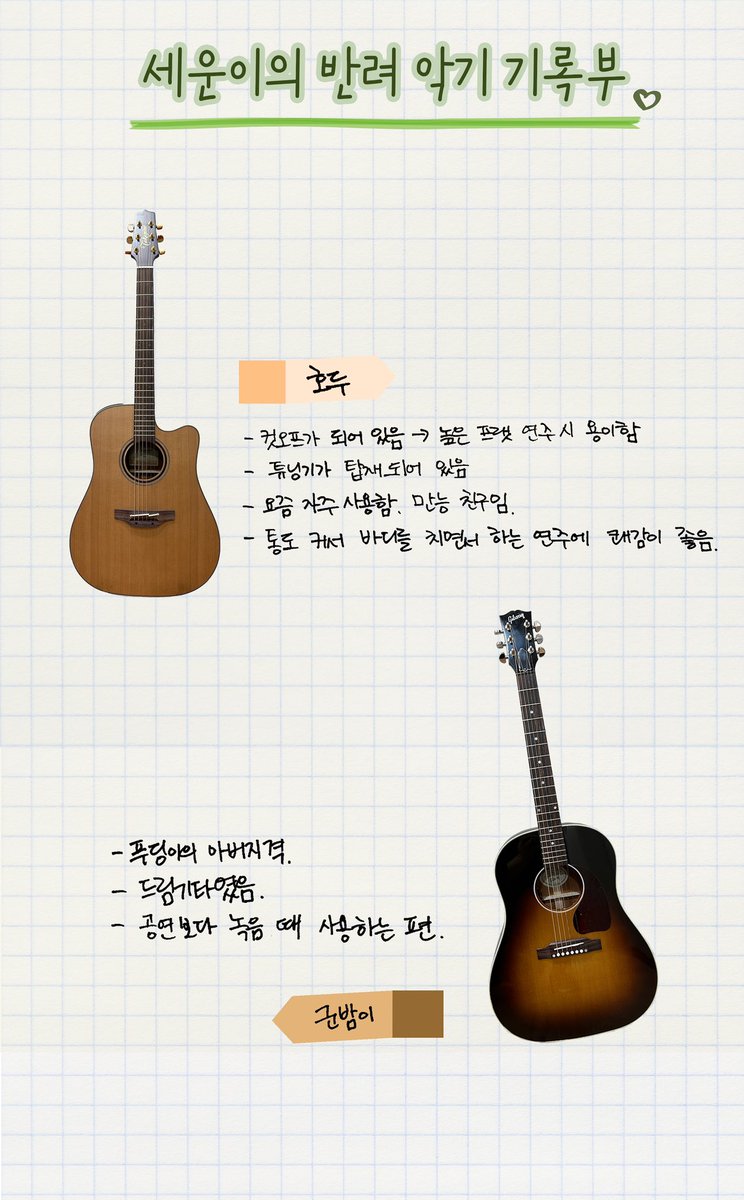 세운이의 반려 악기 기록부
호두
- 컷오프가 되어 있음 → 높은 프랫 연주 시 용이함
- 튜닝기가 탑재되어 있음
- 요즘 자주 사용함. 만능 친구임.
- 통도 커서 바디를 치면서 하는 연주에 쾌감이 좋음.
Gibson
- 푸딩이의 아버지격.
- 드림기타였음.
- 공연보다 녹음 때 사용하는 편.
군밤이